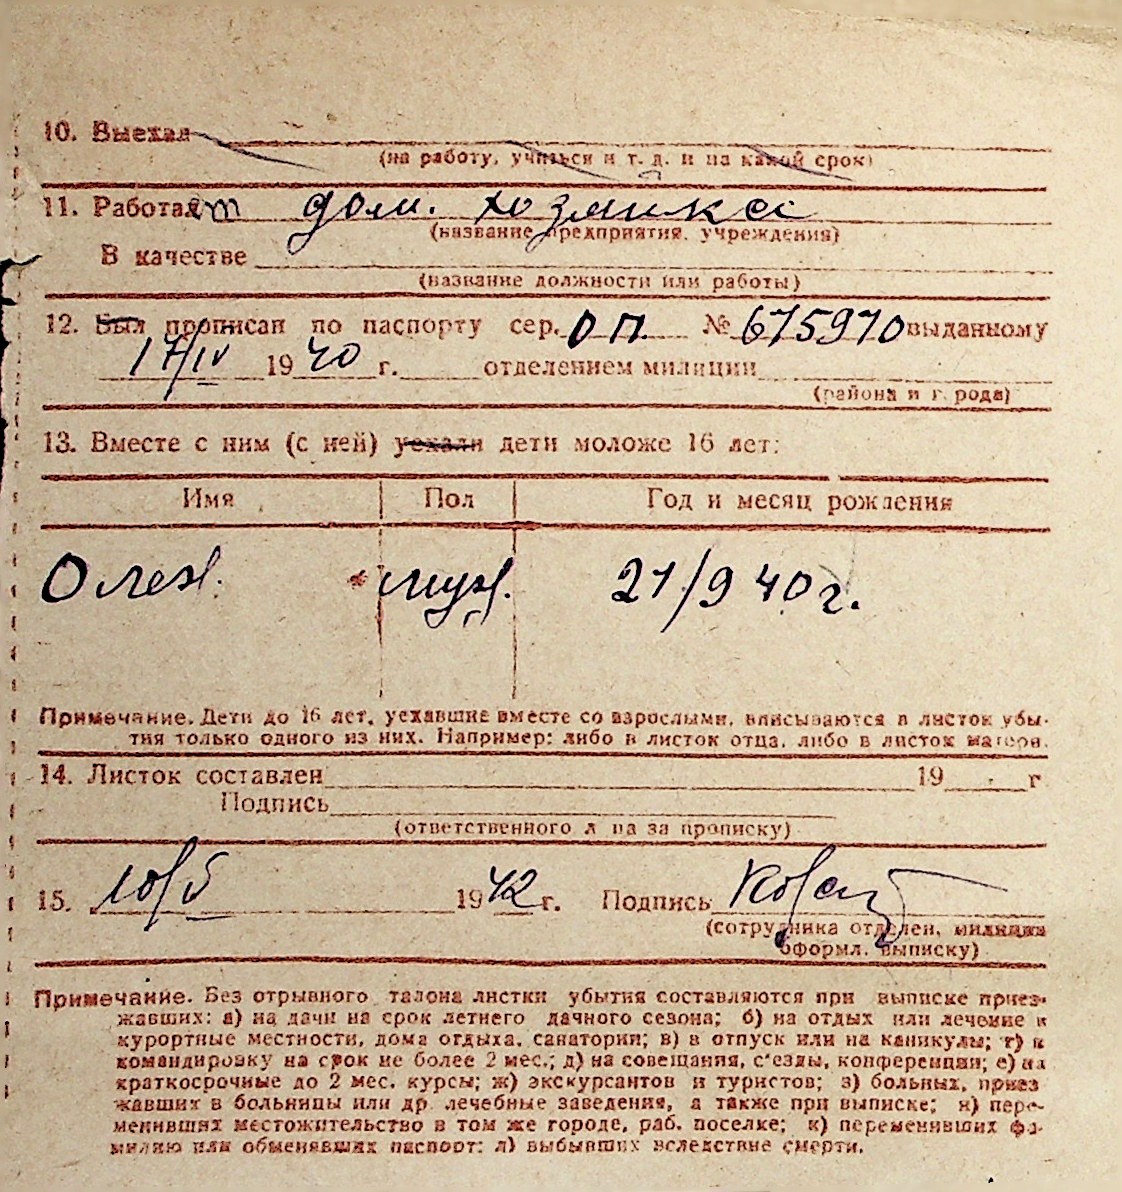 10. Выехал
(на работу, учиться и т. д. и на какой срок)
11. Работает дом. хозяйка
(название предприятия, учреждения)
В качестве
(название должности или работы)
12. Был прописан по паспорту сер. ОП. № 675970 выданному
17/IV 1940 г. отделением милиции
(района и г рода)
13. Вместе с ним (с ней) уехали дети моложе 16 лет:
Имя Пол Год и месяц рождения
муж. 21/9 40 г.
Примечание. Дети до 16 лет, уехавшие вместе со взрослыми, вписываются в листок убы-
тия только одного из них. Например: либо в листок отца, либо в листок матери.
14. Листок составлен 19 г
Подпись
(ответственного л ца за прописку)
15. 10/5 1942 г. Подпись
(сотрудника отделен. милиции
оформл. выписку)
Примечание. Без отрывного талона листки убытия составляются при выписке приез-
жавших: а) на дачи на срок летнего дачного сезона; б) на отдых или лечение в
курортные местности, дома отдыха, санатории; в) в отпуск или на каникулы; г) в
командировку на срок не более 2 мес.; д) на совещания, с'езды, конференции; е) на
краткосрочные до 2 мес. курсы; ж) экскурсантов и туристов; з) больных, приез
жавших в больницы или др лечебные заведения, а также при выписке; и) пере-
менивших местожительство в том же городе, раб. поселке; к) переменивших фа-
милию или обменявших паспорт: л) выбывших вследствие смерти.